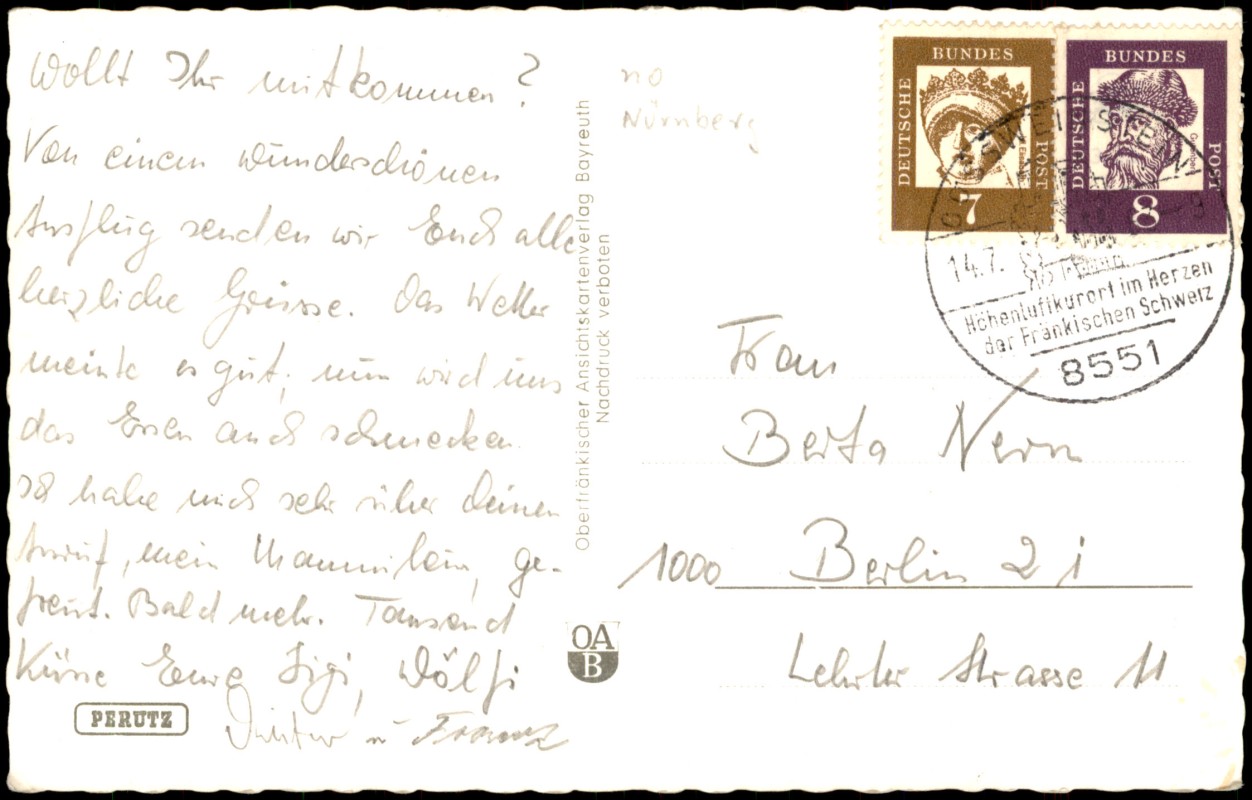 Wollt Ihr mitkommen?
Von einem wunderschönen
Ausflug senden wir Euch alle
herzliche Grüsse. Das Wetter
meinte es gut, nun wird uns
das Essen auch schmecken.
Ich habe mich sehr über deinen
Anruf, mein Mammilein, ge-
freut. Bald mehr. Tausend
Küsse Eure Sigi, Wölfi
u Franz
PERUTZ
Oberfränkischer Ansichtskartenverlag Bayreuth
Nachdruck verboten
OA
B
no
Nürnberg
DEUTSCHE BUNDES POST
7
DEUTSCHE BUNDES POST
8
GÖSSWEINSTEIN
14.7.
Höhenluftkurort im Herzen
der Fränkischen Schweiz
8551
Frau
Berta Nern
1000 Berlin 21
Lehrter Strasse 11